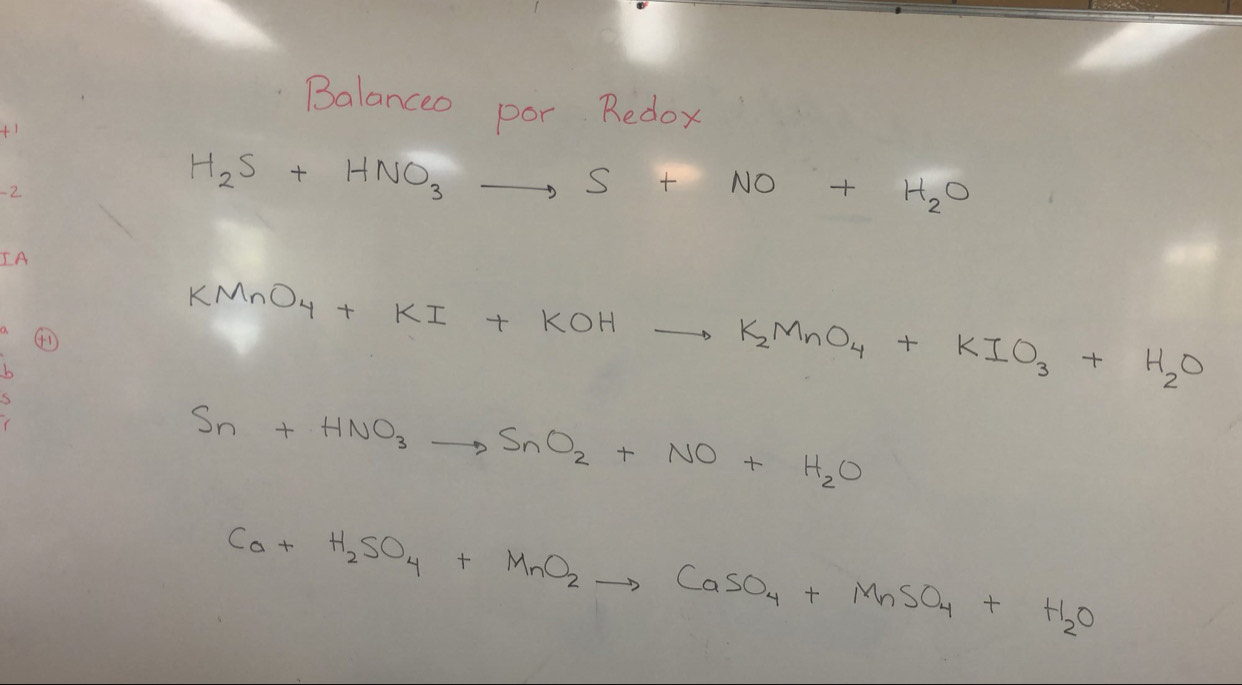 Balanceo por Redox
+1
H₂S + HNO₃ ⟶ S + NO + H₂O
-2
IA
KMnO₄ + KI + KOH ⟶ K₂MnO₄ + KIO₃ + H₂O
a +1
b
s
r
Sn + HNO₃ ⟶ SnO₂ + NO + H₂O
Ca + H₂SO₄ + MnO₂ ⟶ CaSO₄ + MnSO₄ + H₂O